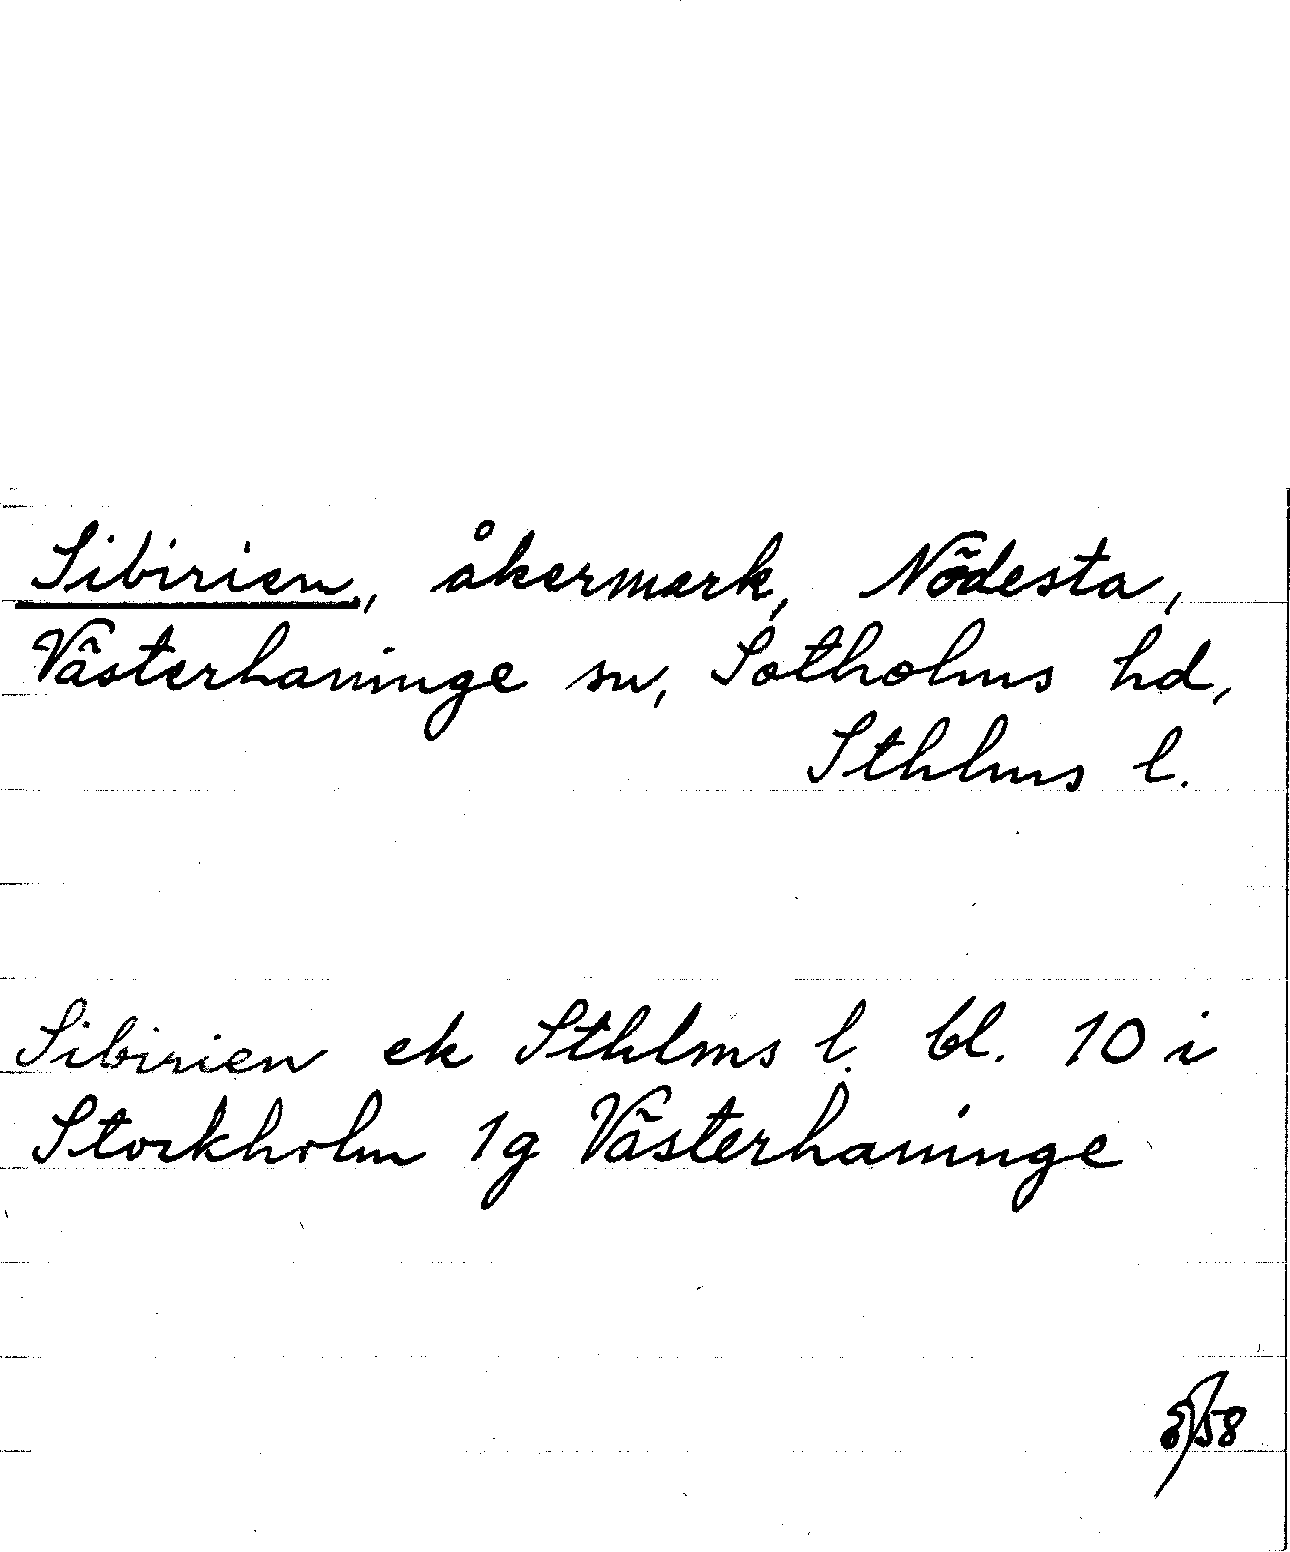 Sibirien, åkermark, Nödesta,
Västerhaninge sn, Sotholms hd,
Sthlms l.
Sibirien ek Sthlms l. bl. 10 i
Stockholm 1g Västerhaninge